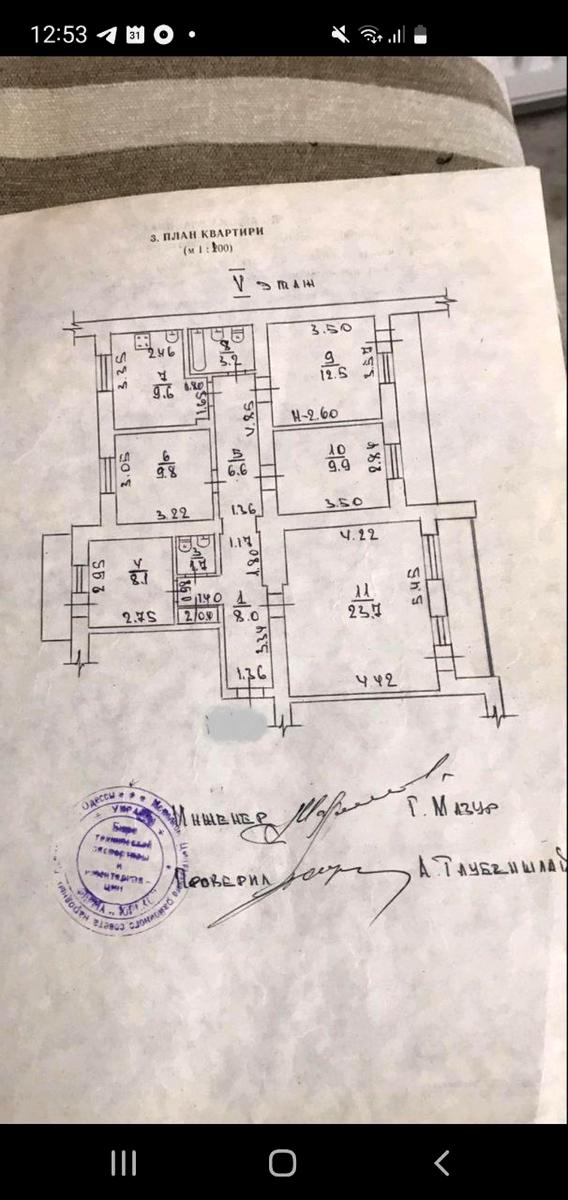 12:53
31
3. ПЛАН КВАРТИРИ
(м 1 : 200)
V этаж
3.50
2.46
8
3.2
9
12.5
3.35
7
9.6
0.80
1.65
3.57
4.85
H-2.60
3.05
6
9.8
5
6.6
10
9.9
2.84
3.22
1.36
3.50
1.17
4.22
2.95
4
8.1
3
1.7
1.80
0.89
1.40
5.45
2.75
2/0.4
1
8.0
11
23.7
3.34
1.36
4.42
Инженер
Г. Мазур
Проверил
Одессы
Украина
Бюро
технической
экспертизы
и
инвентариза-
ции
районного совета народных